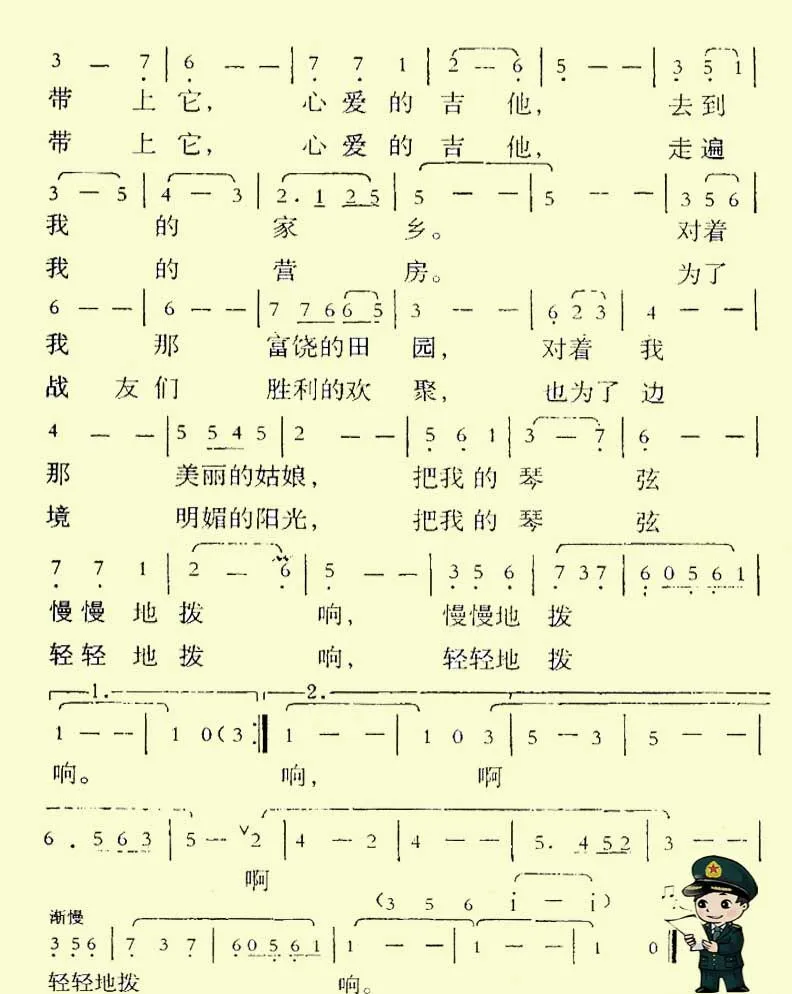 3 — 7 | 6 — — | 7 7 1 | 2 — 6 | 5 — — | 3 5 1
带 上它， 心爱的吉 他， 去到
带 上它， 心爱的吉 他， 走遍
3 — 5 | 4 — 3 | 2. 1 2 5 | 5 — — | 5 — — | 3 5 6
我 的 家 乡。 对着
我 的 营 房。 为了
6 — — | 6 — — | 7 7 6 6 5 | 3 — — | 6 2 3 | 4 — —
我 那 富饶的田 园， 对着 我
战 友们 胜利的欢 聚， 也为了 边
4 — — | 5 5 4 5 | 2 — — | 5 6 1 | 3 — 7 | 6 — —
那 美丽的姑娘， 把我的 琴 弦
境 明媚的阳光， 把我的 琴 弦
7 7 1 | 2 — 6 | 5 — — | 3 5 6 | 7 3 7 | 6 0 5 6 1 |
慢慢 地 拨 响， 慢慢地 拨
轻轻 地 拨 响， 轻轻地 拨
1. 2.
1 — — | 1 0 ( 3 :| 1 — — | 1 0 3 | 5 — 3 | 5 — —
响。 响， 啊
6 . 5 6 3 | 5 — ∨ 2 | 4 — 2 | 4 — — | 5. 4 5 2 | 3 — — |
啊
(3 5 6 i — i)
渐慢
3 5 6 | 7 3 7 | 6 0 5 6 1 | 1 — — | 1 — — | 1 0
轻轻地拨 响。